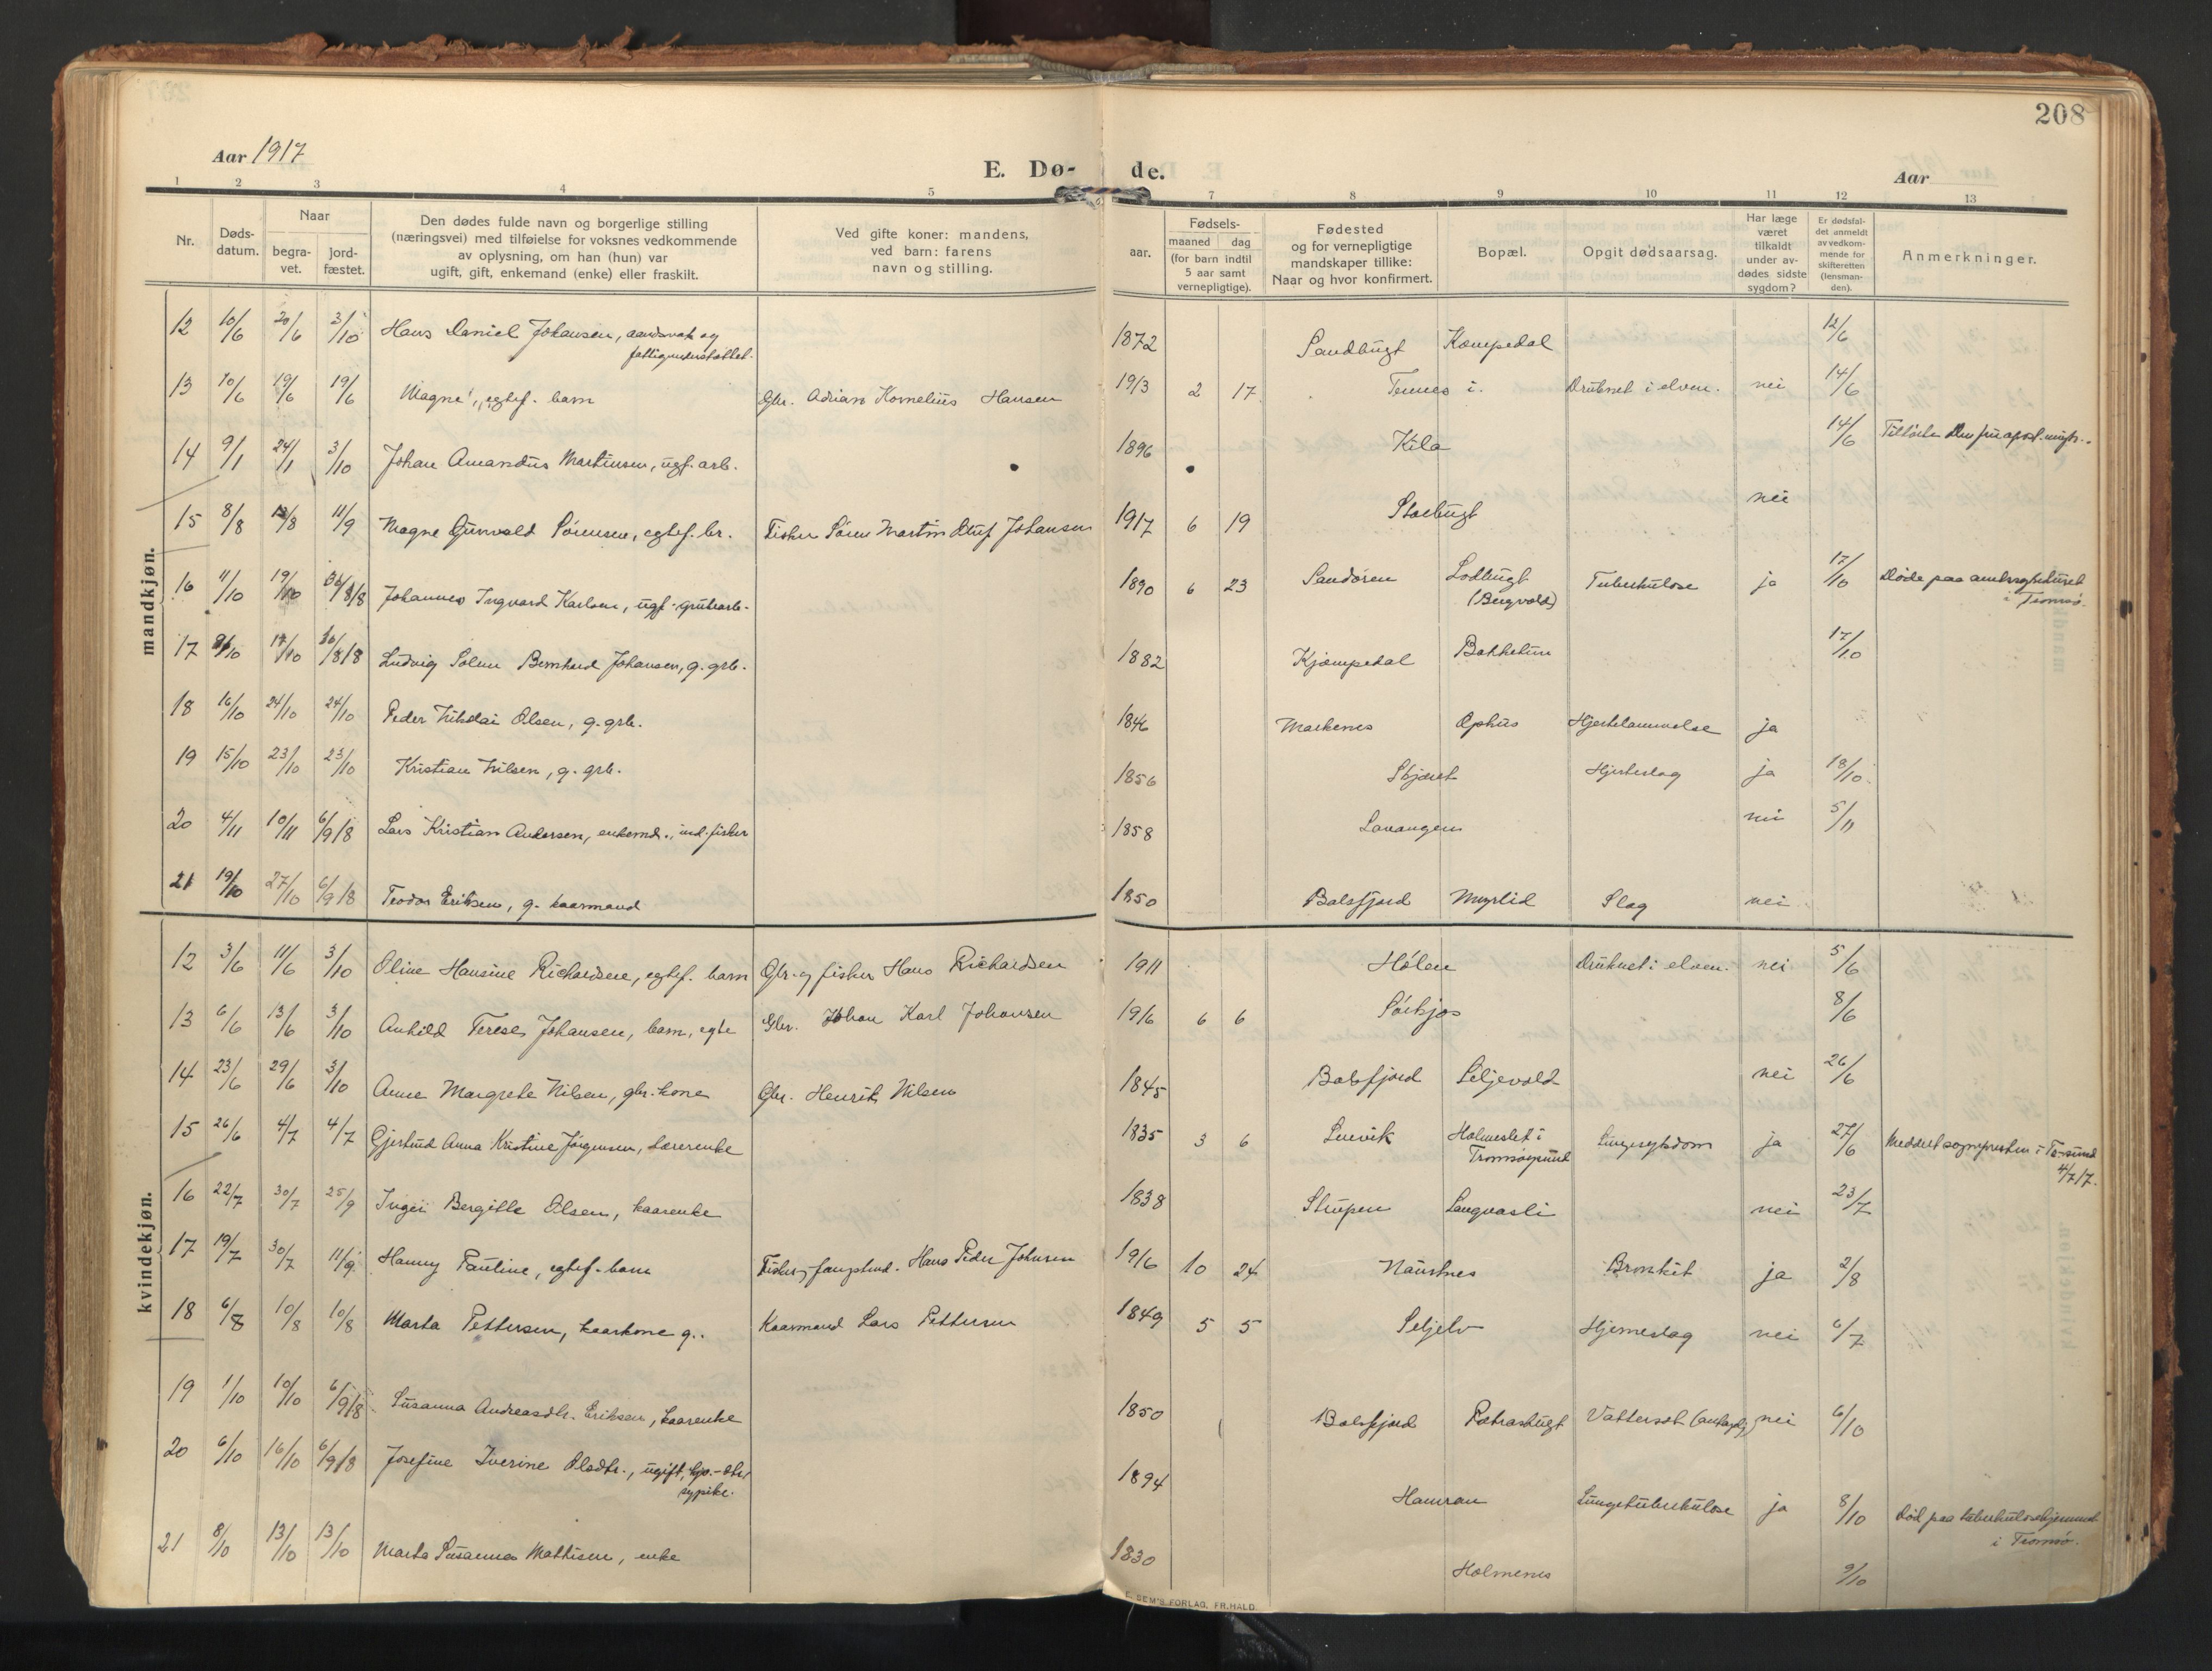 208
Aar 1917
E. Dø-
de.
Aar
1 2 3 4 5 7 8 9 10 11 12 13
Nr.
Døds-
datum.
Naar
begra-
vet.
jord-
fæstet.
Den dødes fulde navn og borgerlige stilling
(næringsvei) med tilføielse for voksnes vedkommende
av oplysning, om han (hun) var
ugift, gift, enkemand (enke) eller fraskilt.
Ved gifte koner: mandens,
ved barn: farens
navn og stilling.
Fødsels-
aar.
maaned
dag
(for barn indtil
5 aar samt
vernepligtige).
Fødested
og for vernepligtige
mandskaper tillike:
Naar og hvor konfirmert.
Bopæl.
Opgit dødsaarsag.
Har læge
været
tilkaldt
under av-
dødes sidste
sygdom?
Er dødsfal-
det anmeldt
av vedkom-
mende for
skifteretten
(lensman-
den).
Anmerkninger.
mandkjøn.
12 10/6 20/6 3/10 Hans Daniel Johansen, aandsvak og 1872 Sandbugt Kæmpedal 12/6
fattigunderstøttet.
13 10/6 19/6 19/6 Magne, egtef. barn Gbr. Adrian Kornelius Hansen 1913 2 17 Tennes i. Druknet i elven. nei 14/6
14 9/1 24/1 3/10 Johan Amandus Martinsen, ugf. arb. 1896 Kila 14/6
15 8/8 /8 11/9 Magne Gunvald Sørensen, egtef. br. Fisker Søren Martin Oluf Johansen 1917 6 19 Storbugt nei
16 11/10 19/10 30/8 18 Johannes Ingvard Karlsen, ugf. grubearb. 1890 6 23 Sandøren Lodbugt Tuberkulose ja 17/10 Døde paa amtssykehuset
(Bergvold) i Tromsø.
17 /10 17/10 30/8 18 Ludvig Solem Bernhard Johansen, g. grb. 1882 Kjæmpedal Bakketun 17/10
18 16/10 24/10 24/10 Peder Nikolai Olsen, g. grb. 1846 Markenes Ophus Hjertelammelse ja
19 15/10 23/10 23/10 Kristian Nilsen, g. grb. 1856 Skjæret Hjerteslag ja 18/10
20 4/11 10/11 6/9 18 Lars Kristian Andersen, enkemd., ind. fisker 1858 Lavangen nei 5/11
21 19/10 27/10 6/9 18 Teodor Eriksen, g. kaarmand 1850 Balsfjord Myrlid Slag nei
kvindekjøn.
12 3/6 11/6 3/10 Oline Hansine Richardsen, egtef. barn Gbr. og fisker Hans Richardsen 1911 Hølen Druknet i elven. nei 5/6
13 6/6 13/6 3/10 Anhild Terese Johansen, barn, egte Gbr. Johan Karl Johansen 1916 6 6 Sørkjos 8/6
14 23/6 29/6 3/10 Anne Margrete Nilsen, gbr. kone Gbr. Henrik Nilsen 1845 Balsfjord Seljevold nei 26/6
15 26/6 4/7 4/7 Gjertrud Anna Kristine Jørgensen, Lærerenke 1835 3 6 Lenvik Holmeslet i Lungesykdom ja 27/6 Meddelt sognepresten i Ts-sund
Tromsøysund 4/7 17.
16 22/7 30/7 25/9 Inger Bergitte Olsen, kaarenke 1838 Strupen Langvasli nei 23/7
17 19/7 30/7 11/9 Hanny Pauline, egtef. barn Hans Peder Johnsen 1916 10 24 Naustnes Bronkit ja 2/8
18 6/8 10/8 10/8 Marta Pettersen, kaarkone g. Kaarmand Lars Pettersen 1849 5 5 Seljelv Hjerneslag nei 6/7
19 1/10 10/10 6/9 18 Susanna Andreasdtr. Eriksen, kaarenke 1850 Balsfjord Patrasbugt Vattersot (antagelig) nei 6/10
20 6/10 16/10 6/9 18 Josefine Iverine Olsdtr., ugift, 1894 Hamran Lungetuberkulose ja 8/10 Død paa tuberkulosehjemmet
sypike. i Tromsø.
21 8/10 13/10 13/10 Marta Susanna Mathisen, enke 1830 Holmenes 9/10
E. SEM'S FORLAG, FR.HALD.